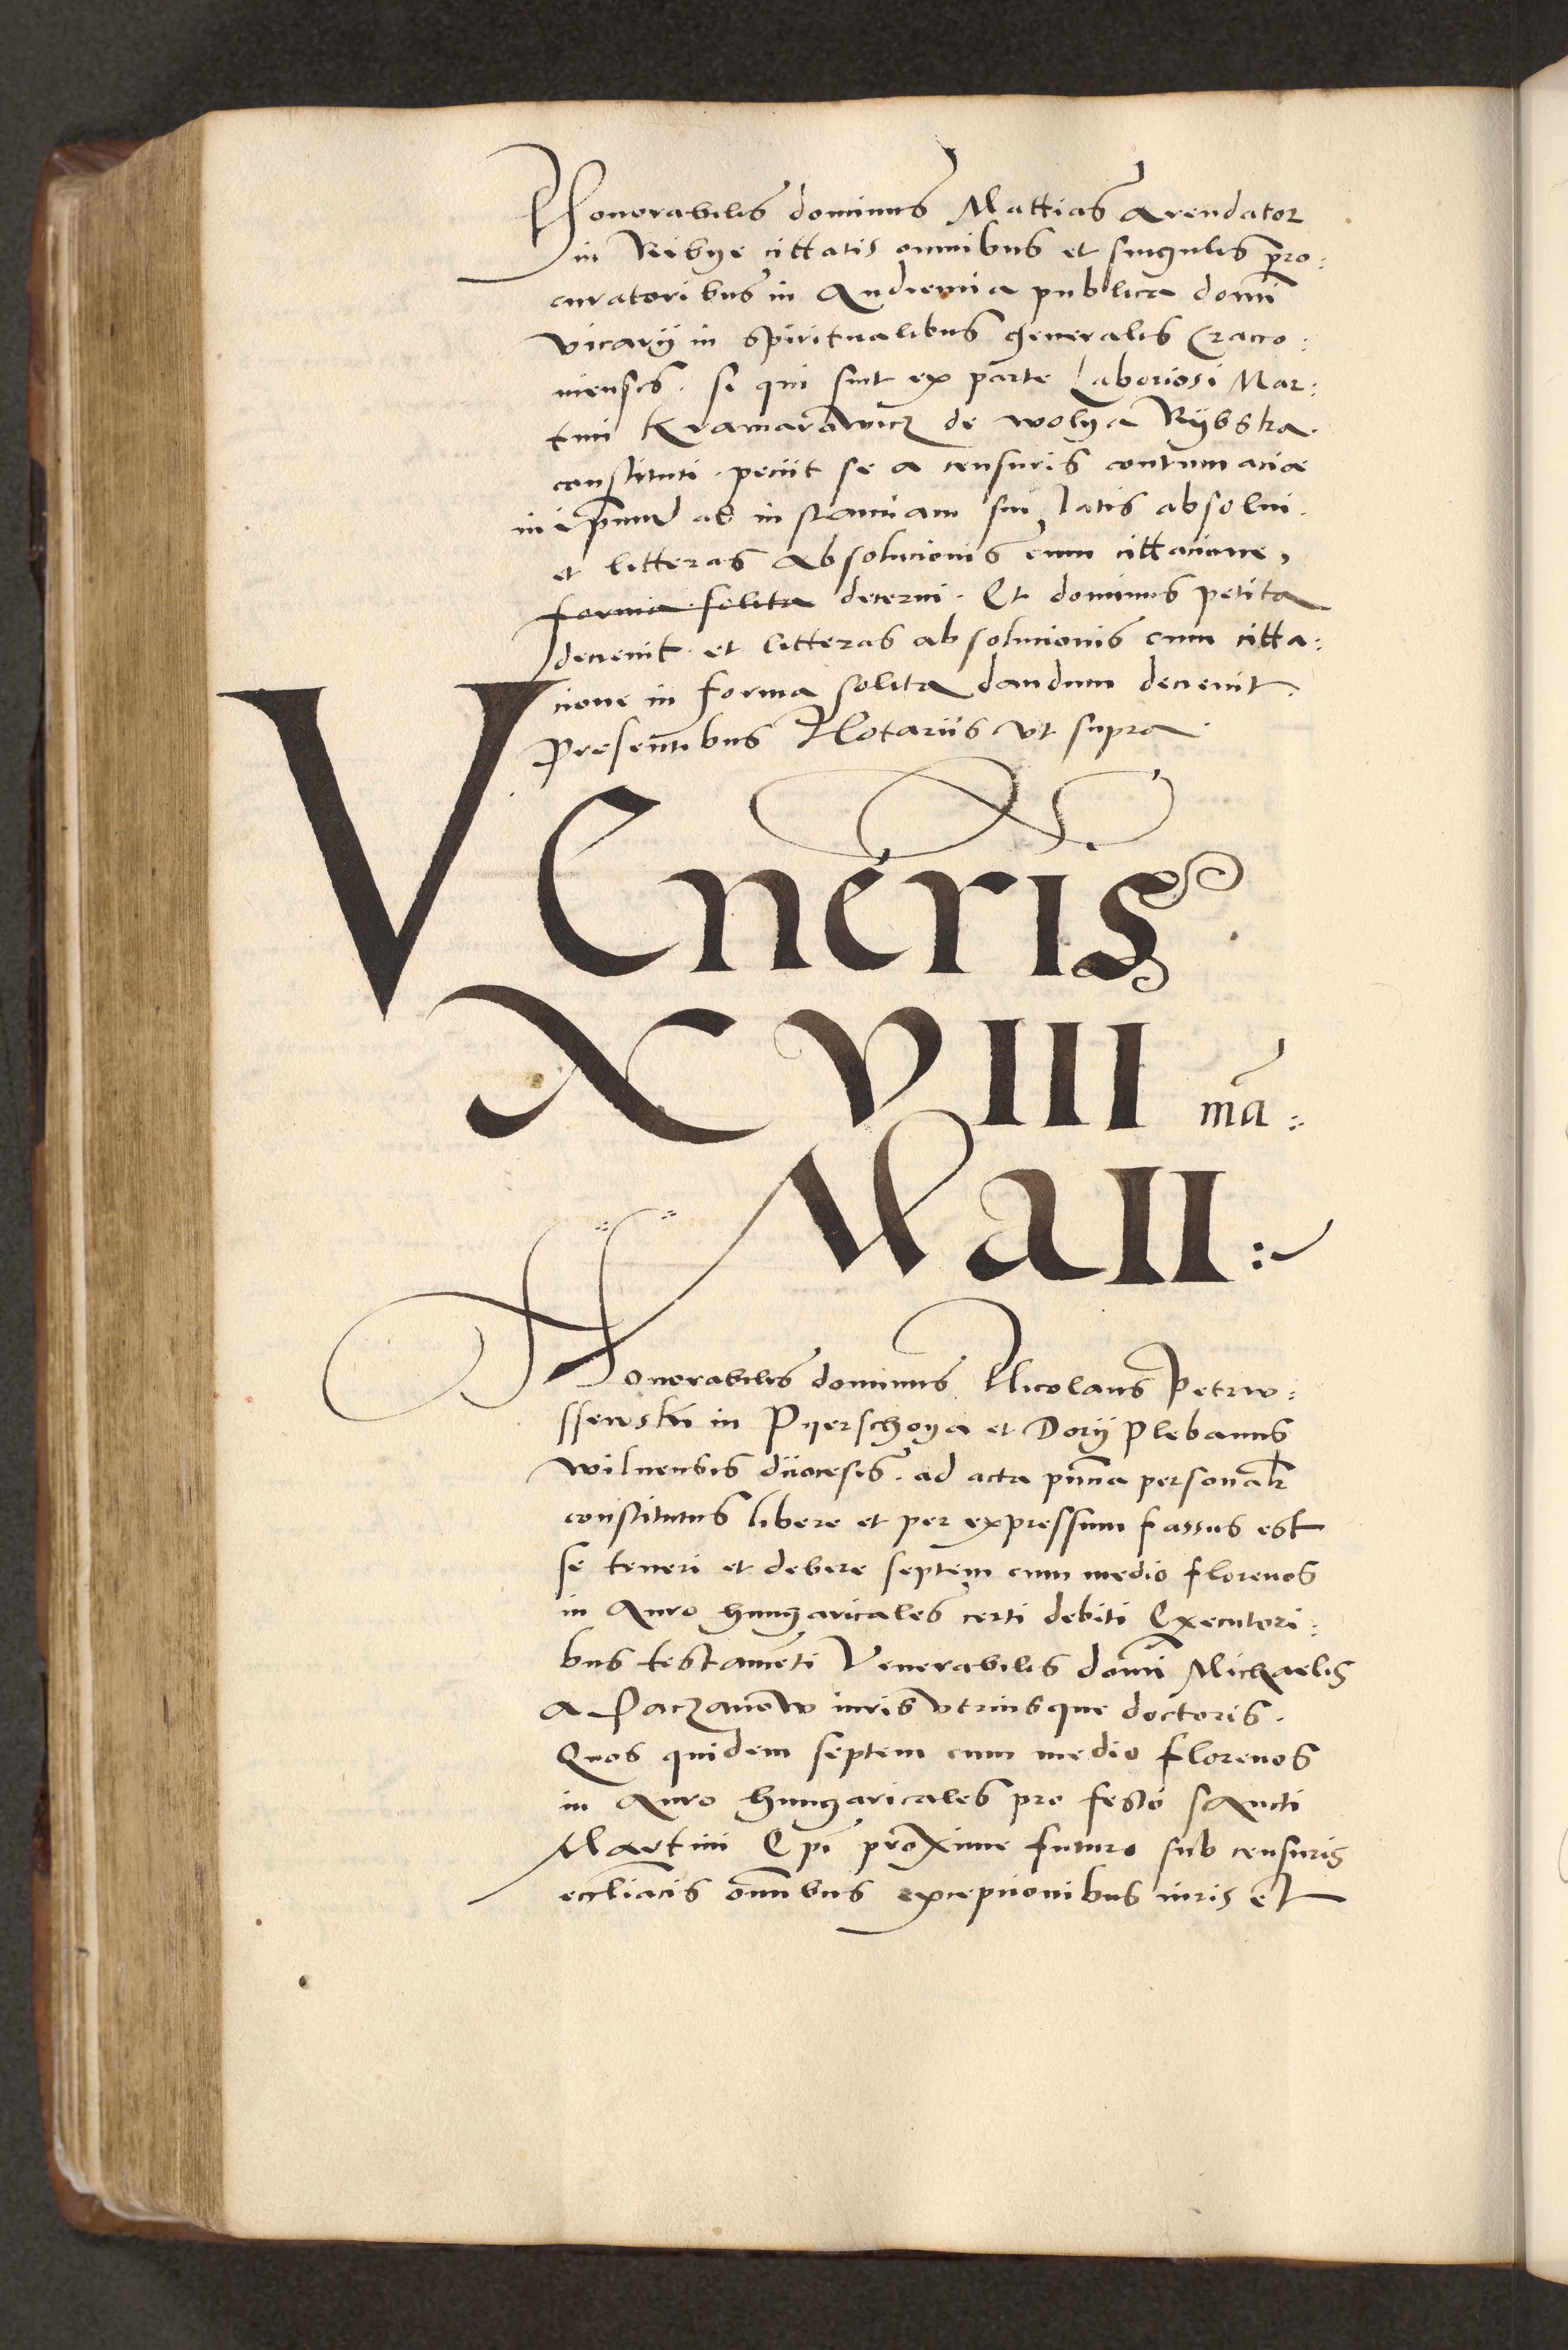 Honorabilis dominus Mattias Arendator
in Ribye cittatis omnibus et singulis pro:
curatoribus in Audiencia publica domi
vicarij in spiritualibus generalis Craco:
uiensis. si qui sint ex parte Laboriosi Mar:
tini Kramarawicz de wolya Rybska.
constituti. peciit se a censuris contumacie
in ipsum ad instanciam sui latis absolui.
et litteras absolucionis cum cittacione,
forma solita decerni. Et dominus petita
decreuit. et litteras absolucionis cum citta:
cione in forma solita dandum decreuit.
Presentibus Notariis vt supra.
VEneris
XVIII ma:
Maii:
Honorabilis dominus Nicolaus Petrw:
ssewski in Pyerschoya et Dorij Plebanus
wilnensis diiocesis. ad acta pnna personalr
constitutus libere et per expressum fassus est
se teneri et debere septem cum medio florenos
in Auro hungaricales certi debiti Executori:
bus testamenti Venerabilis domi Michaelis
a Paczanow iuris vtriusque doctoris.
Quos quidem septem cum medio florenos
in Auro hungaricales pro festo sancti
Martini Epi proxime futuro sub censuris
eccliacis omibus excepcionibus iuris et